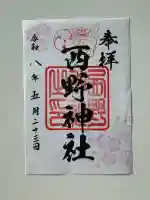 奉拝
西野神社
令和八年五月二十三日